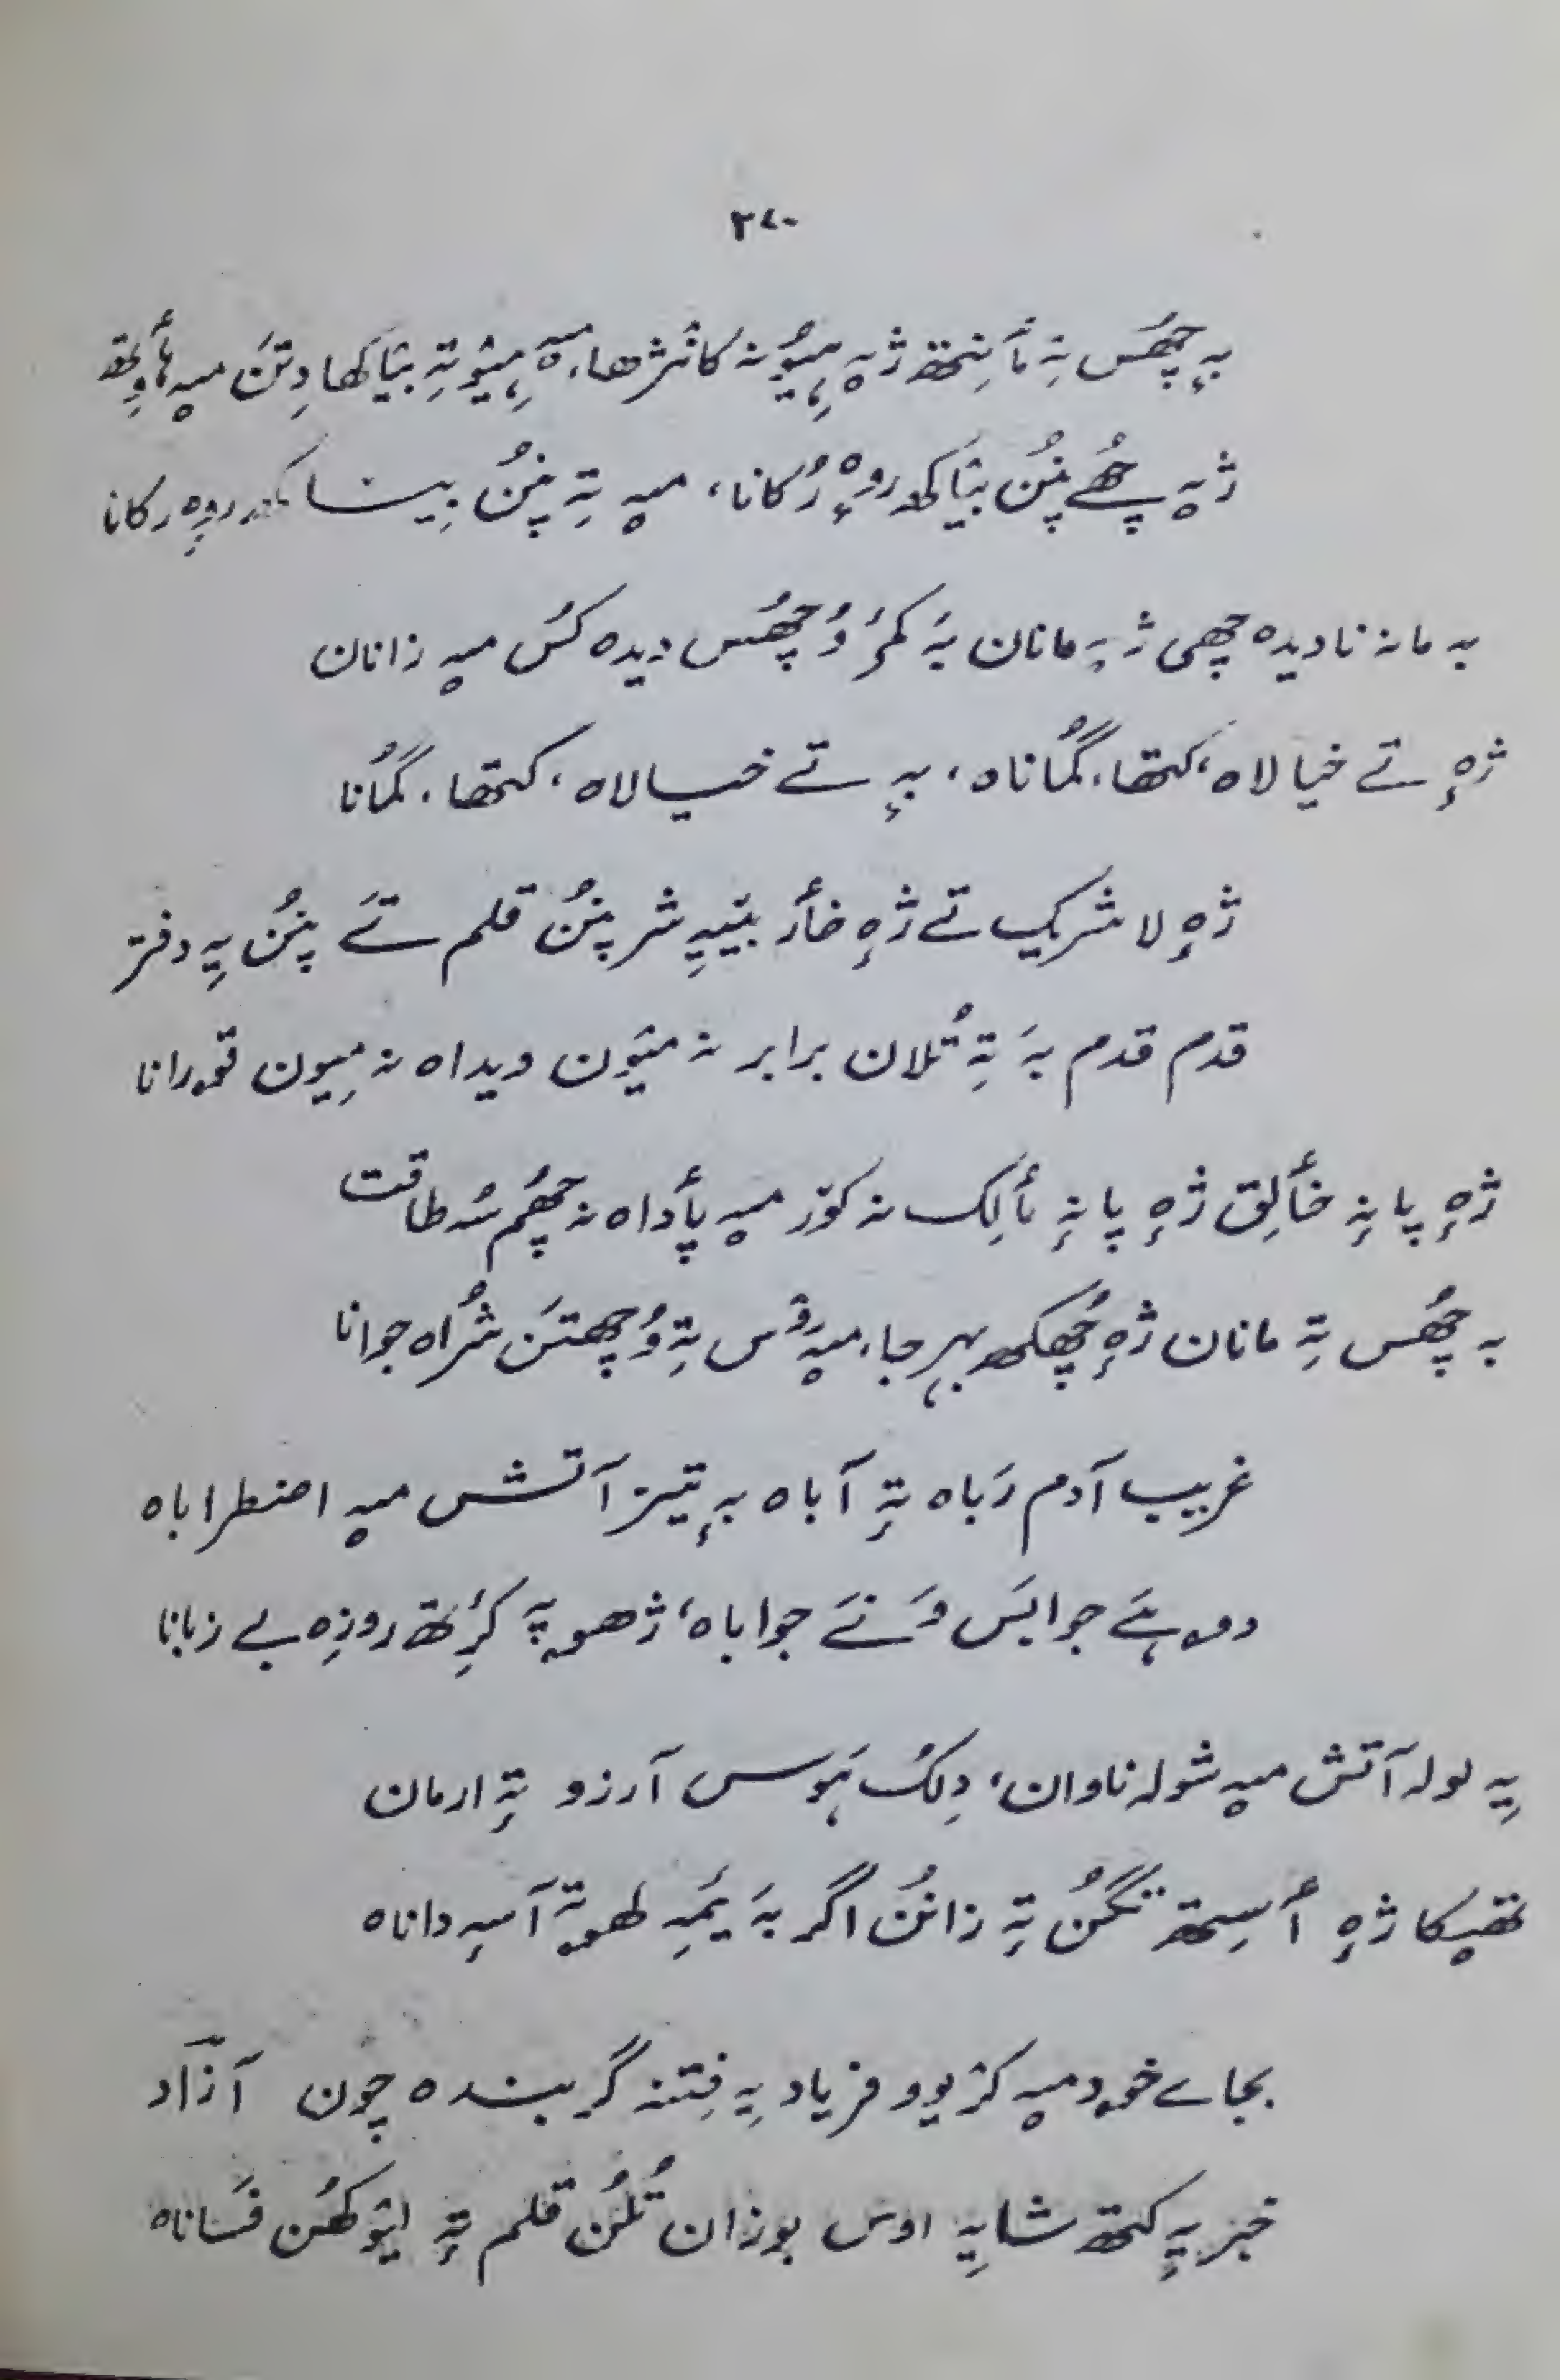 ۳۷۰
بہٕ چھُس تہٕ مٲنِتھ ژےٚہ ہیُونہ کانٛژھا، مےٚہ ہِیٚو تہٕ بیٚاکھا دِتَن میہٕ ہٲوِتھ
ژےٚہ چھُے پنُن بیٚاکھ روٗہ رُکانا، میہٕ تہٕ پنُن بییٚاکھ روٗہ رکانا
بہ مانہ نادیدہ چھی ژہ مانان بہَ کمَر وُچھُس دیدہ کُس میہٕ زانان
ژہٕ تے خیالاہ، کتھا، گُماناہ، بہٕ تے خیالاہ، کتھا، گُمانا
ژہٕ لا شریک تے ژہٕ خٲر بیٚیہِ شر پنُن قلم تےَ پنُن یہِ دفتر
قدم قدم بہَ تہٕ تُلان برابر نہ میٚون ویداہ نہ میٚون قورانا
ژہٕ پانہٕ خٲلِق ژہٕ پانہٕ مٲلِک نہ کوٚر میہٕ پٲداہ نہ چھُم سُہ طاقت
بہ چھُس تہٕ مانان ژہٕ چھُکھ بہر جا، میہٕ رۆس تہٕ وُچھتَن شُراہ جوانا
غریب آدم رَباہ تہٕ آباہ بہٕ تیز آتش میہٕ اضطراباہ
دوہ ہےَ جوابَس وَنےَ جواباہ، ژھوپہَ کٔرِتھ روزِہ بے زبانا
یہِ لولہ آتش میہٕ شولہ ناوان، دِلُک ہَوس آرزو تہٕ ارمان
تھیکا ژہٕ أسِتھ تَنگُن تہٕ زانُن اگر بہَ یَمیہِ لھوتہٕ آسہِ داناہ
بجاے خود میہٕ کرٚ یوٚو فریاد یہِ فِتنہ گر بندہ چون آزاد
خبر یہٕ کتھ شایہِ اوس بوزان تُلُن قلم تہٕ لیوٚکھُن فَساناہ